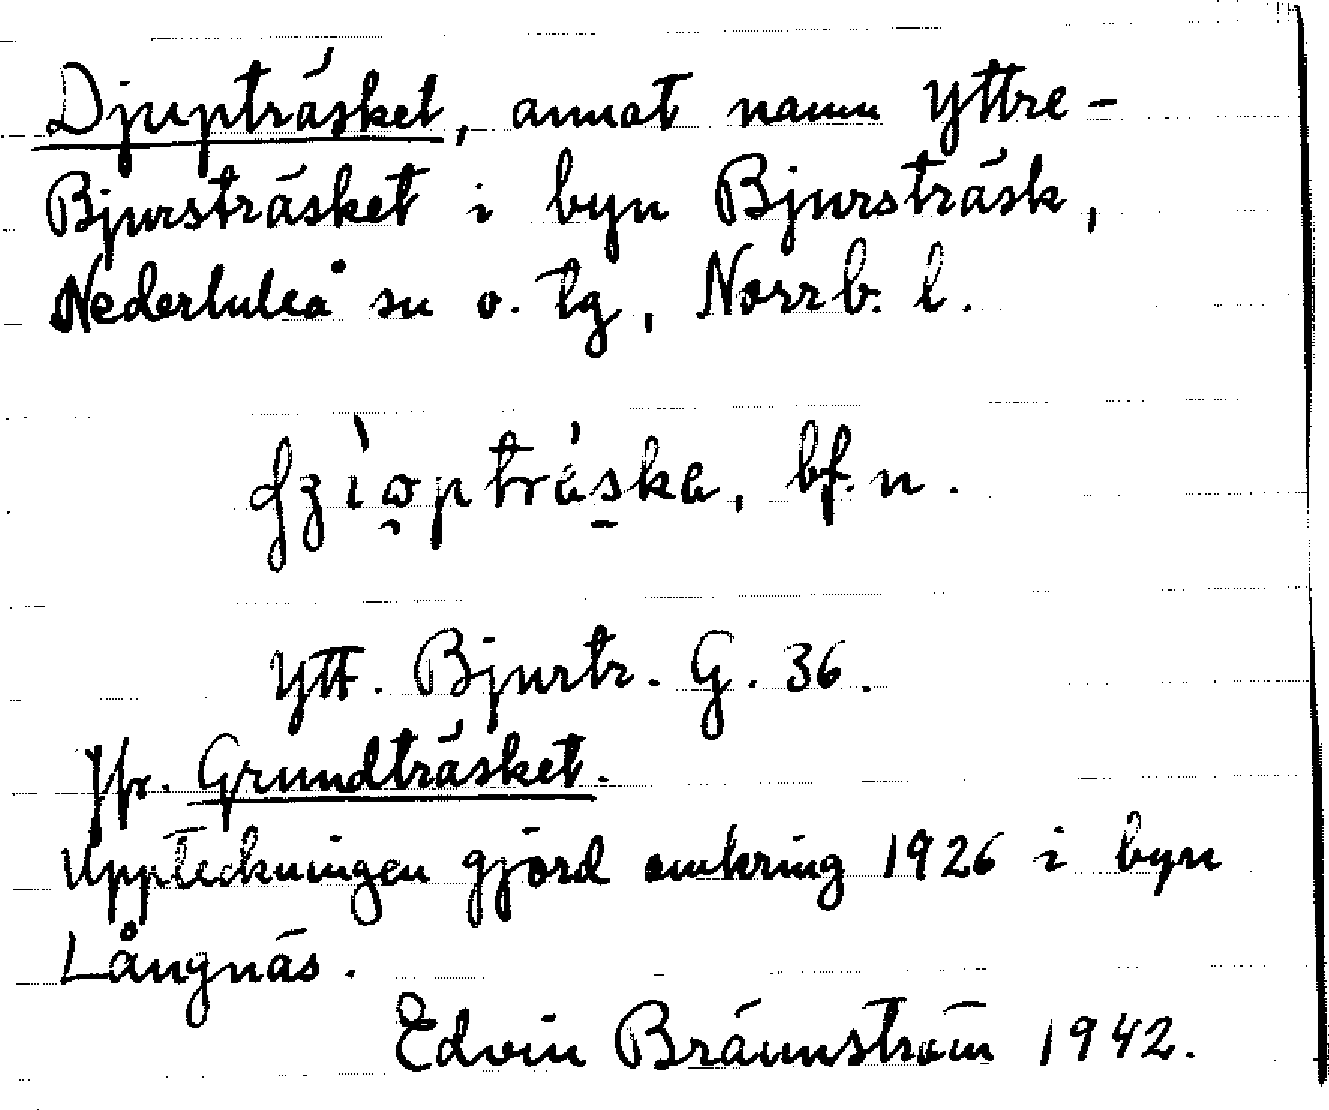 Djupträsket, annat namn Yttre-
Bjursträsket i byn Bjursträsk,
Nederluleå sn o. tg, Norrb. l.
bf. n.
Ytt. Bjurtr. G. 36.
Jfr. Grundträsket.
Uppteckningen gjord omkring 1926 i byn
Långnäs.
Edvin Brännström 1942.